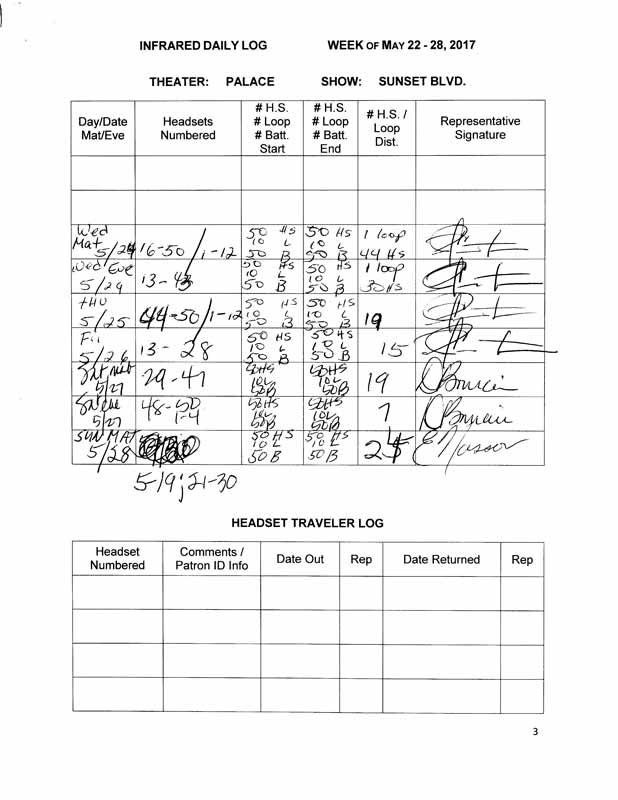 INFRARED DAILY LOG WEEK OF MAY 22 - 28, 2017
THEATER: PALACE SHOW: SUNSET BLVD.
Day/Date Mat/Eve Headsets Numbered # H.S. # Loop # Batt. Start # H.S. # Loop # Batt. End # H.S. / Loop Dist. Representative Signature
Wed Mat 5/24 16-50/1-12 50 HS 10 L 50 B 50 HS 10 L 50 B 1 loop 44 HS
Wed Eve 5/24 13-43 50 HS 10 L 50 B 50 HS 10 L 50 B 1 loop 30 HS
THU 5/25 44-50/1-12 50 HS 10 L 50 B 50 HS 10 L 50 B 19
Fri 5/26 13-28 50 HS 10 L 50 B 50 HS 10 L 50 B 15
Sat mat 5/27 29-47 50HS 10L 50B 50HS 10L 50B 19
Sat eve 5/27 48-50 1-4 50HS 10L 50B 50HS 10L 50B 7
SUN MAT 5/28 50 HS 10 L 50 B 50 HS 10 L 50 B
5-19; 21-30
HEADSET TRAVELER LOG
Headset Numbered Comments / Patron ID Info Date Out Rep Date Returned Rep
3